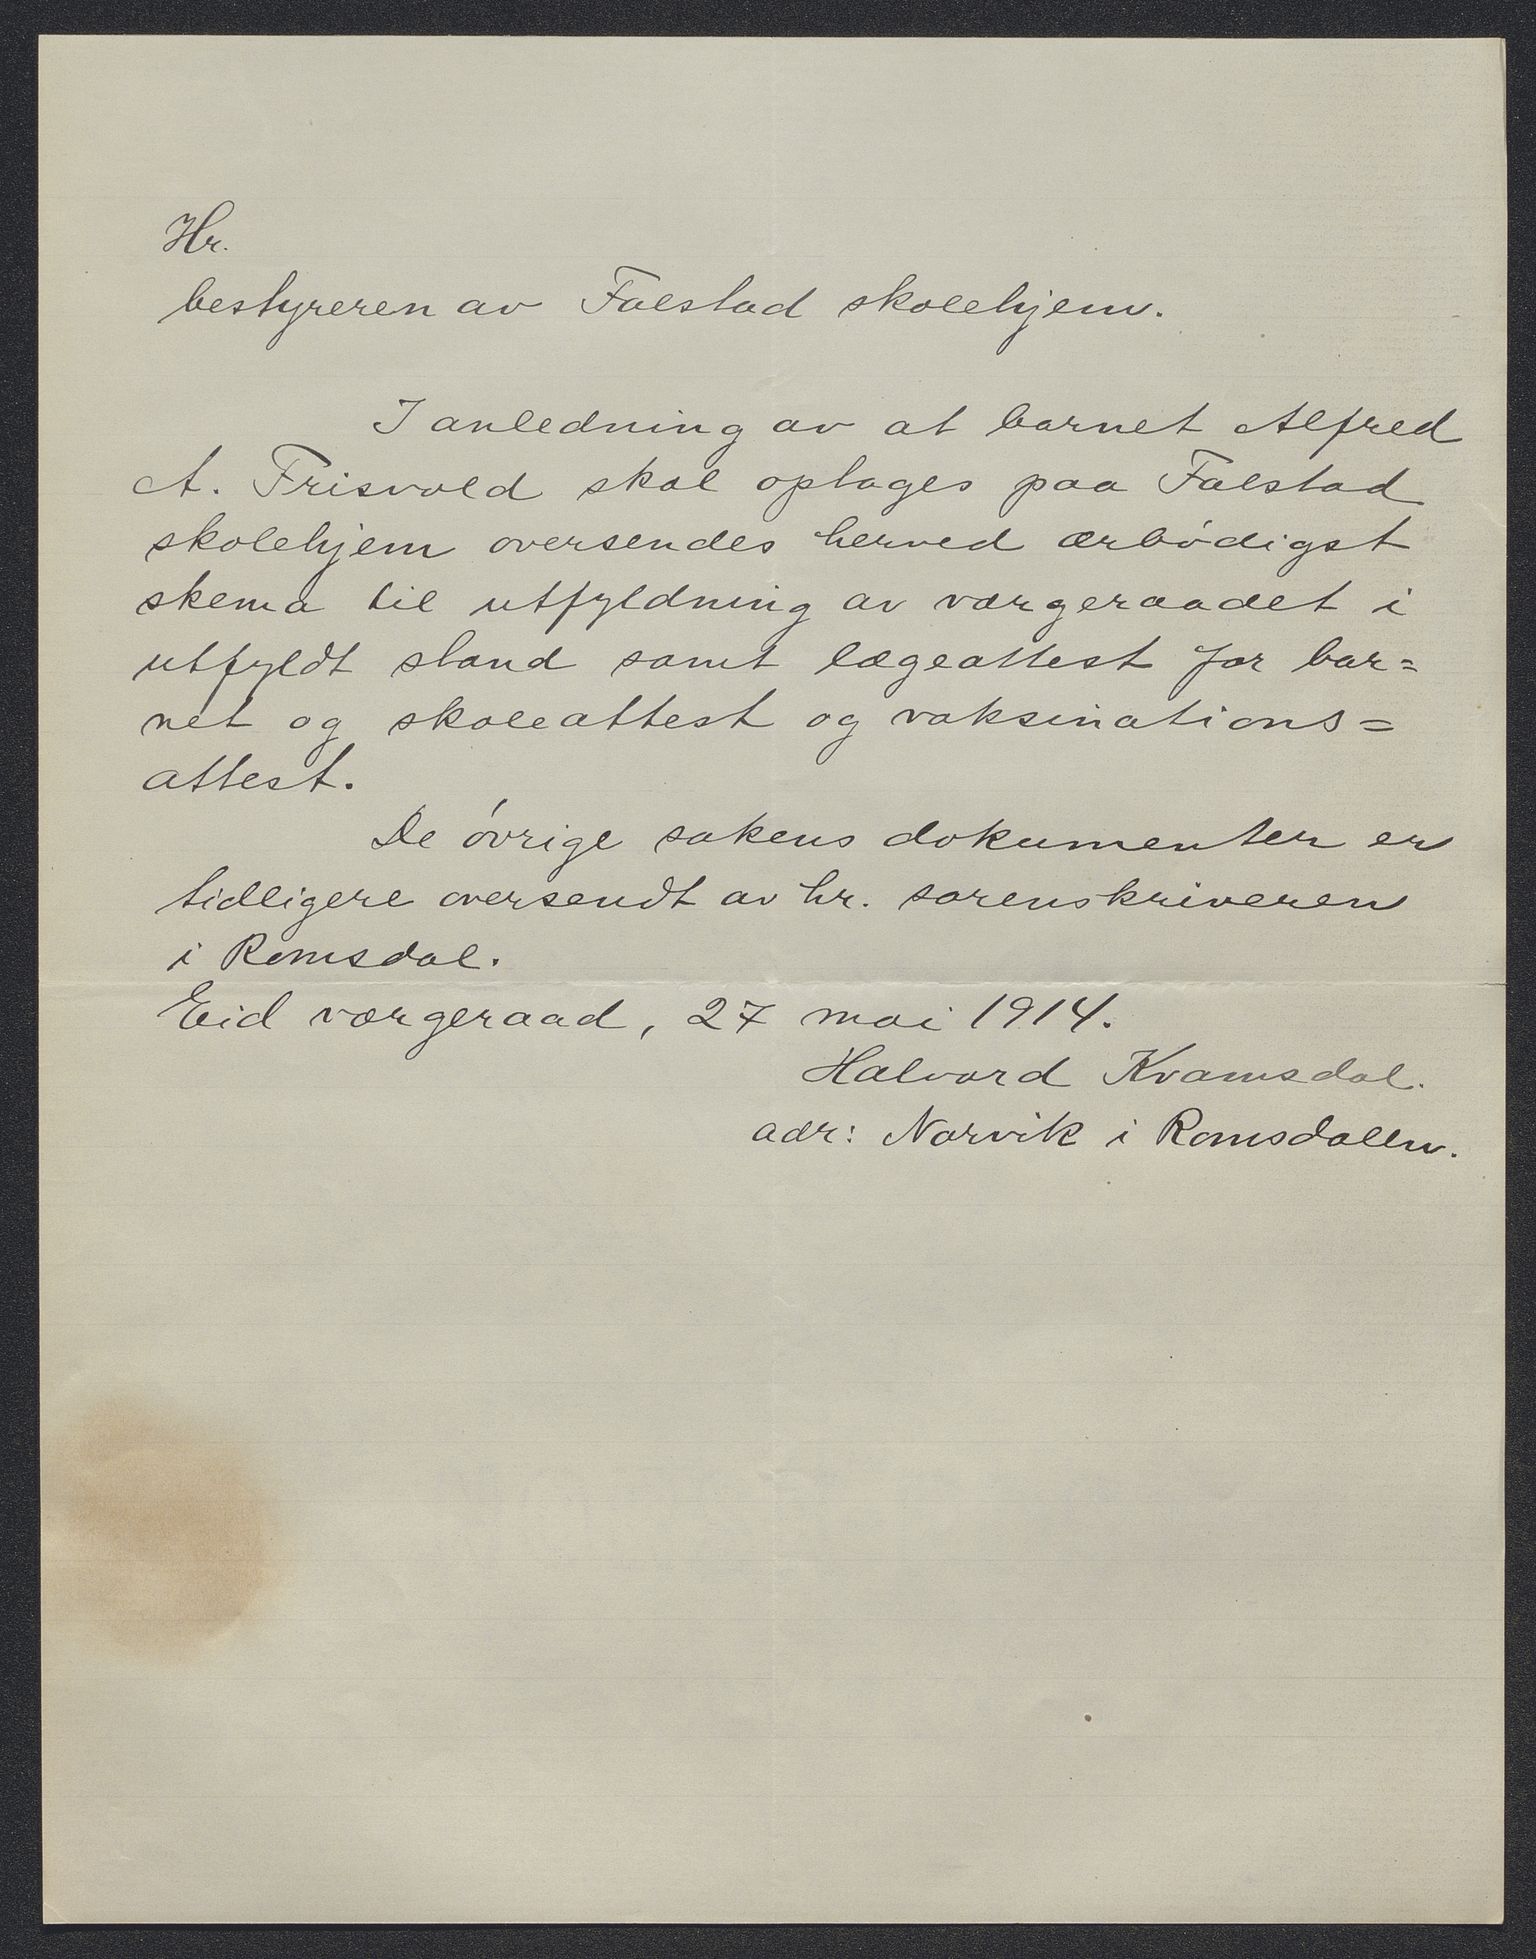 Hr.
bestyreren av Falstad skolehjem.
I anledning av at barnet Alfred
A. Frisvold skal optages paa Falstad
skolehjem oversendes herved ærbødigst
skema til utfyldning av værgeraadet i
utfyldt stand samt lægeattest for bar=
net og skoleattest og vaksinations=
attest.
De øvrige sakens dokumenter er
tidligere oversendt av hr. sorenskriveren
i Romsdal.
Eid værgeraad, 27 mai 1914.
Halvard Kvamsdal.
adr: Norvik i Romsdalen.